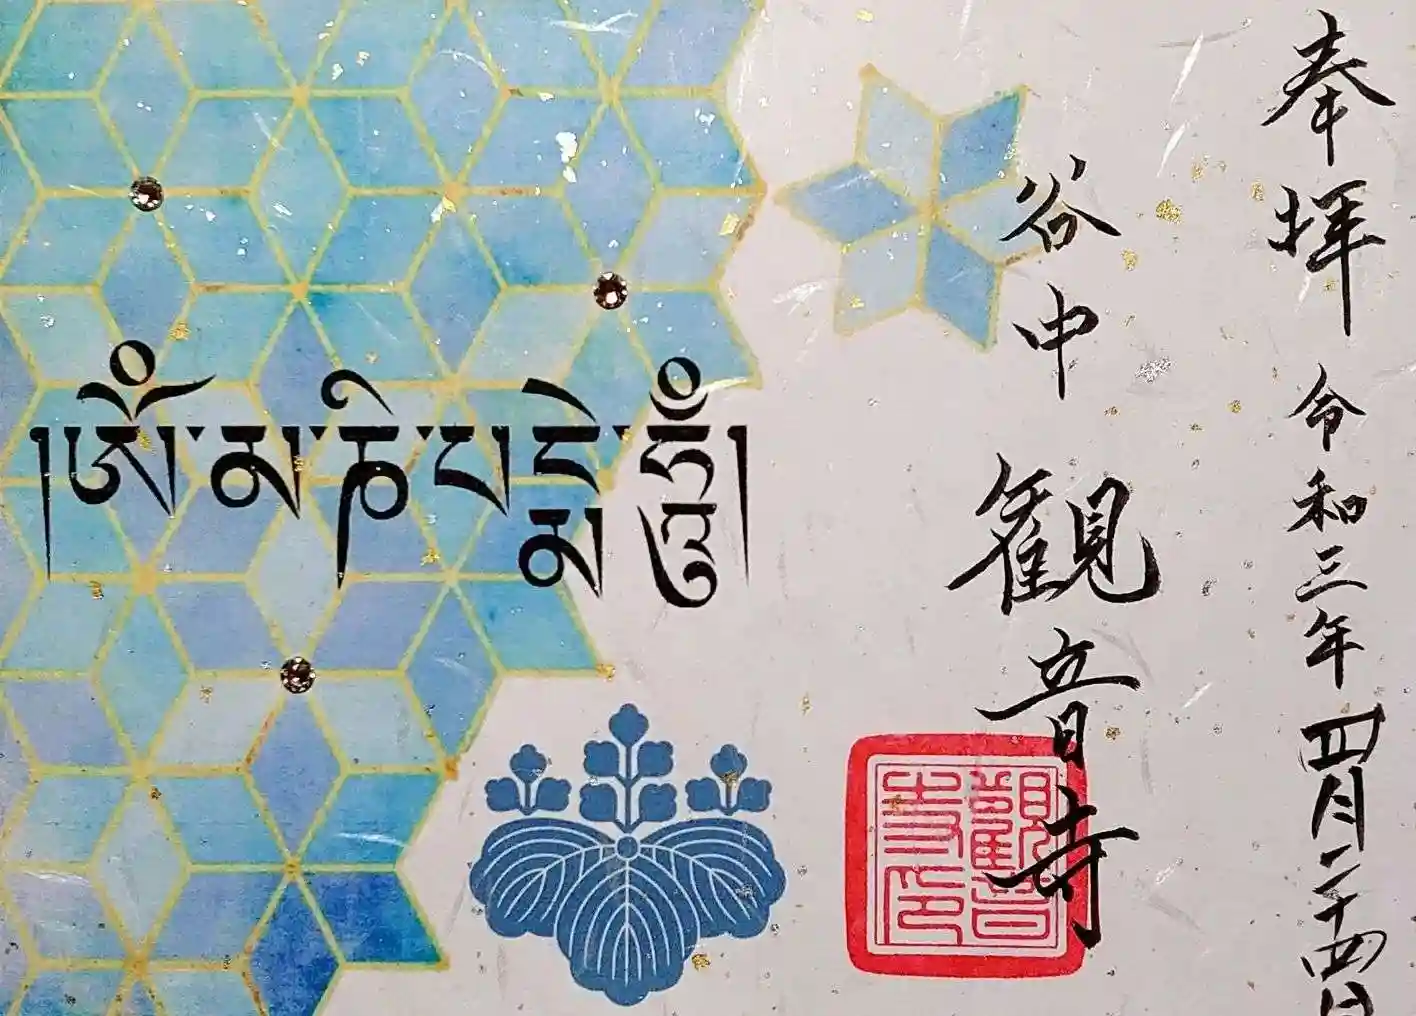 奉拝 令和三年四月二十四日
谷中 観音寺
།ༀ་མ་ཎི་པ་དྨེ་ཧཱུྃ།
觀音寺印